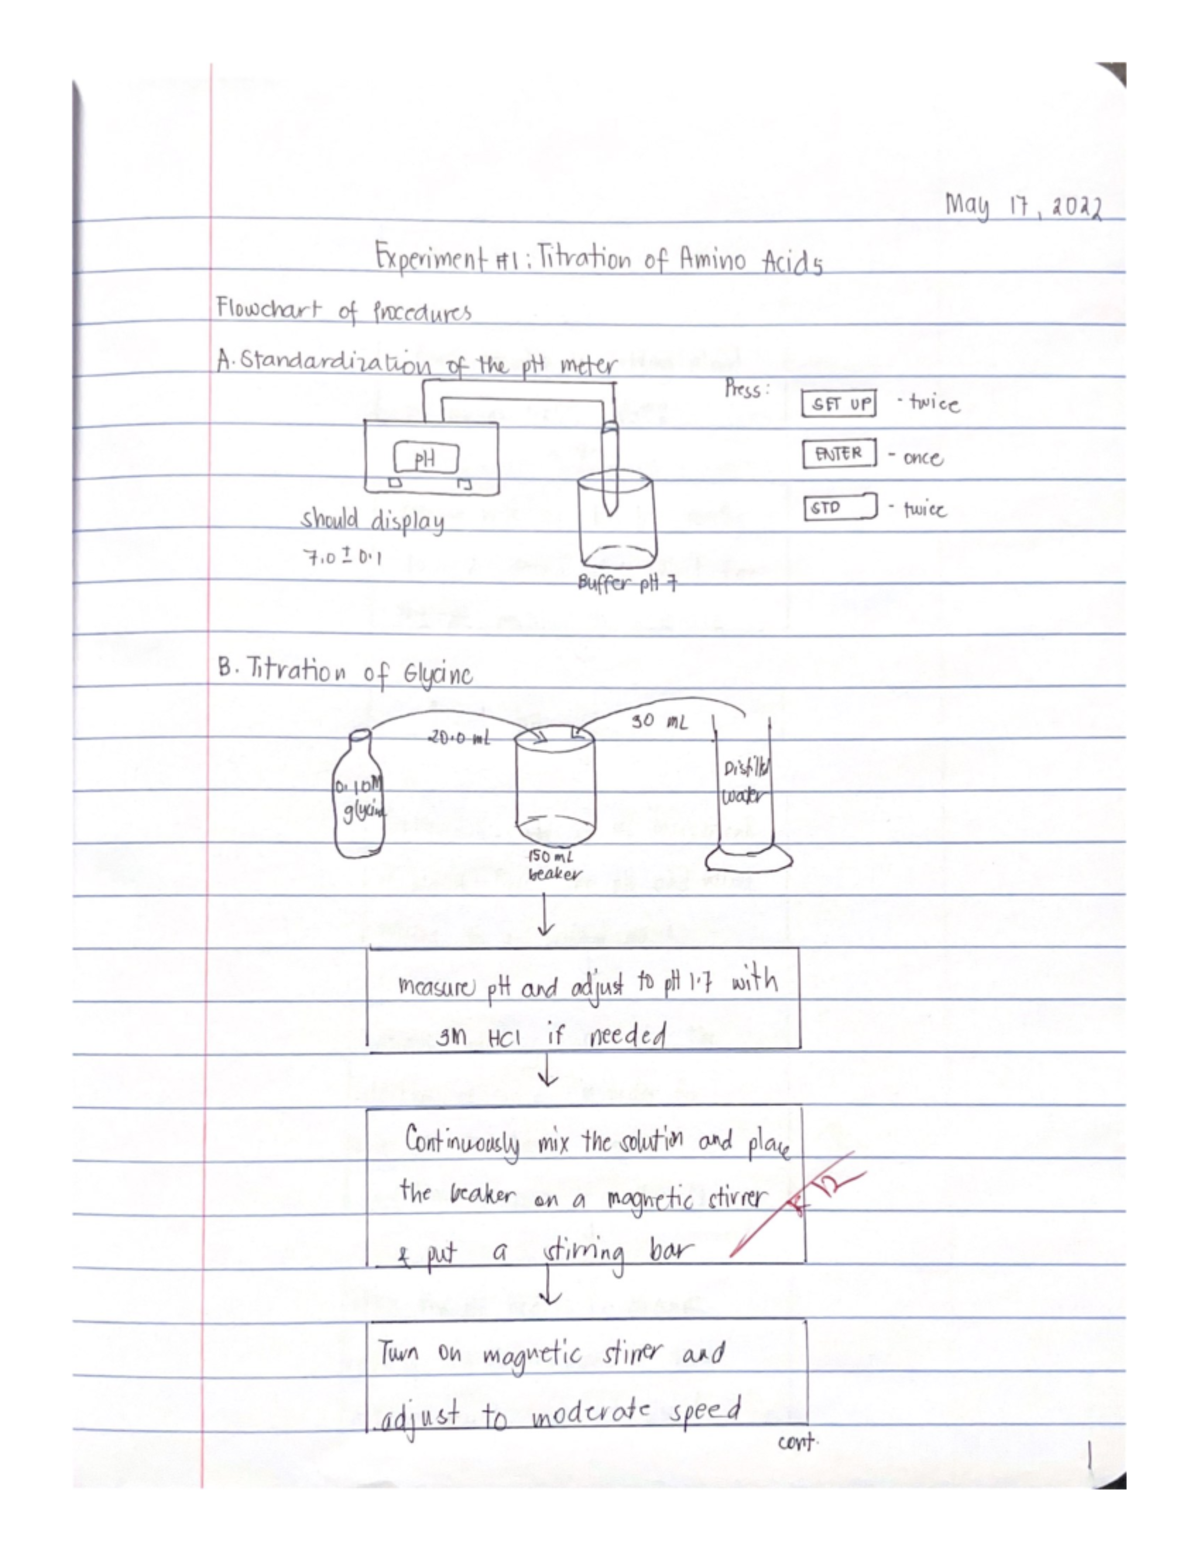 May 17, 2022
Experiment #1: Titration of Amino Acids
Flowchart of Procedures
A. Standardization of the pH meter
Press:
SET UP - twice
pH
ENTER - once
STD - twice
should display
7.0 ± 0.1
Buffer pH 7
B. Titration of Glycine
20.0 mL
30 mL
0.10M
glycine
Distilled
water
150 mL
beaker
measure pH and adjust to pH 1.7 with
3M HCl if needed
Continuously mix the solution and place
the beaker on a magnetic stirrer
& put a stirring bar
Turn on magnetic stirrer and
adjust to moderate speed
cont.
1